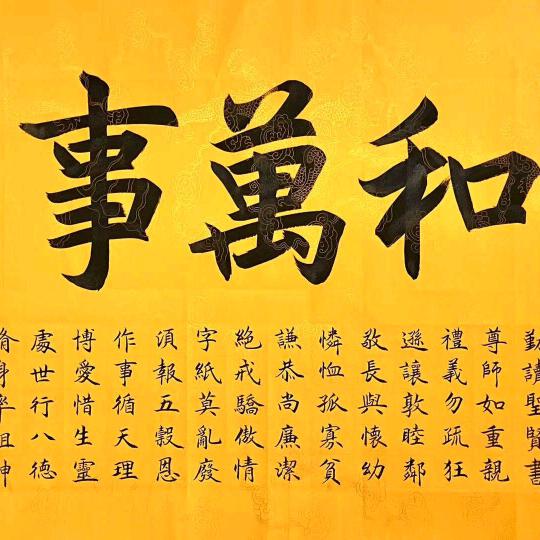 和萬事
勤讀聖賢書
尊師如重親
禮義勿疏狂
遜讓敦睦鄰
敬長與懷幼
憐恤孤寡貧
謙恭尚廉潔
絕戒驕傲情
字紙莫亂廢
須報五穀恩
作事循天理
博愛惜生靈
處世行八德
脩身率祖神